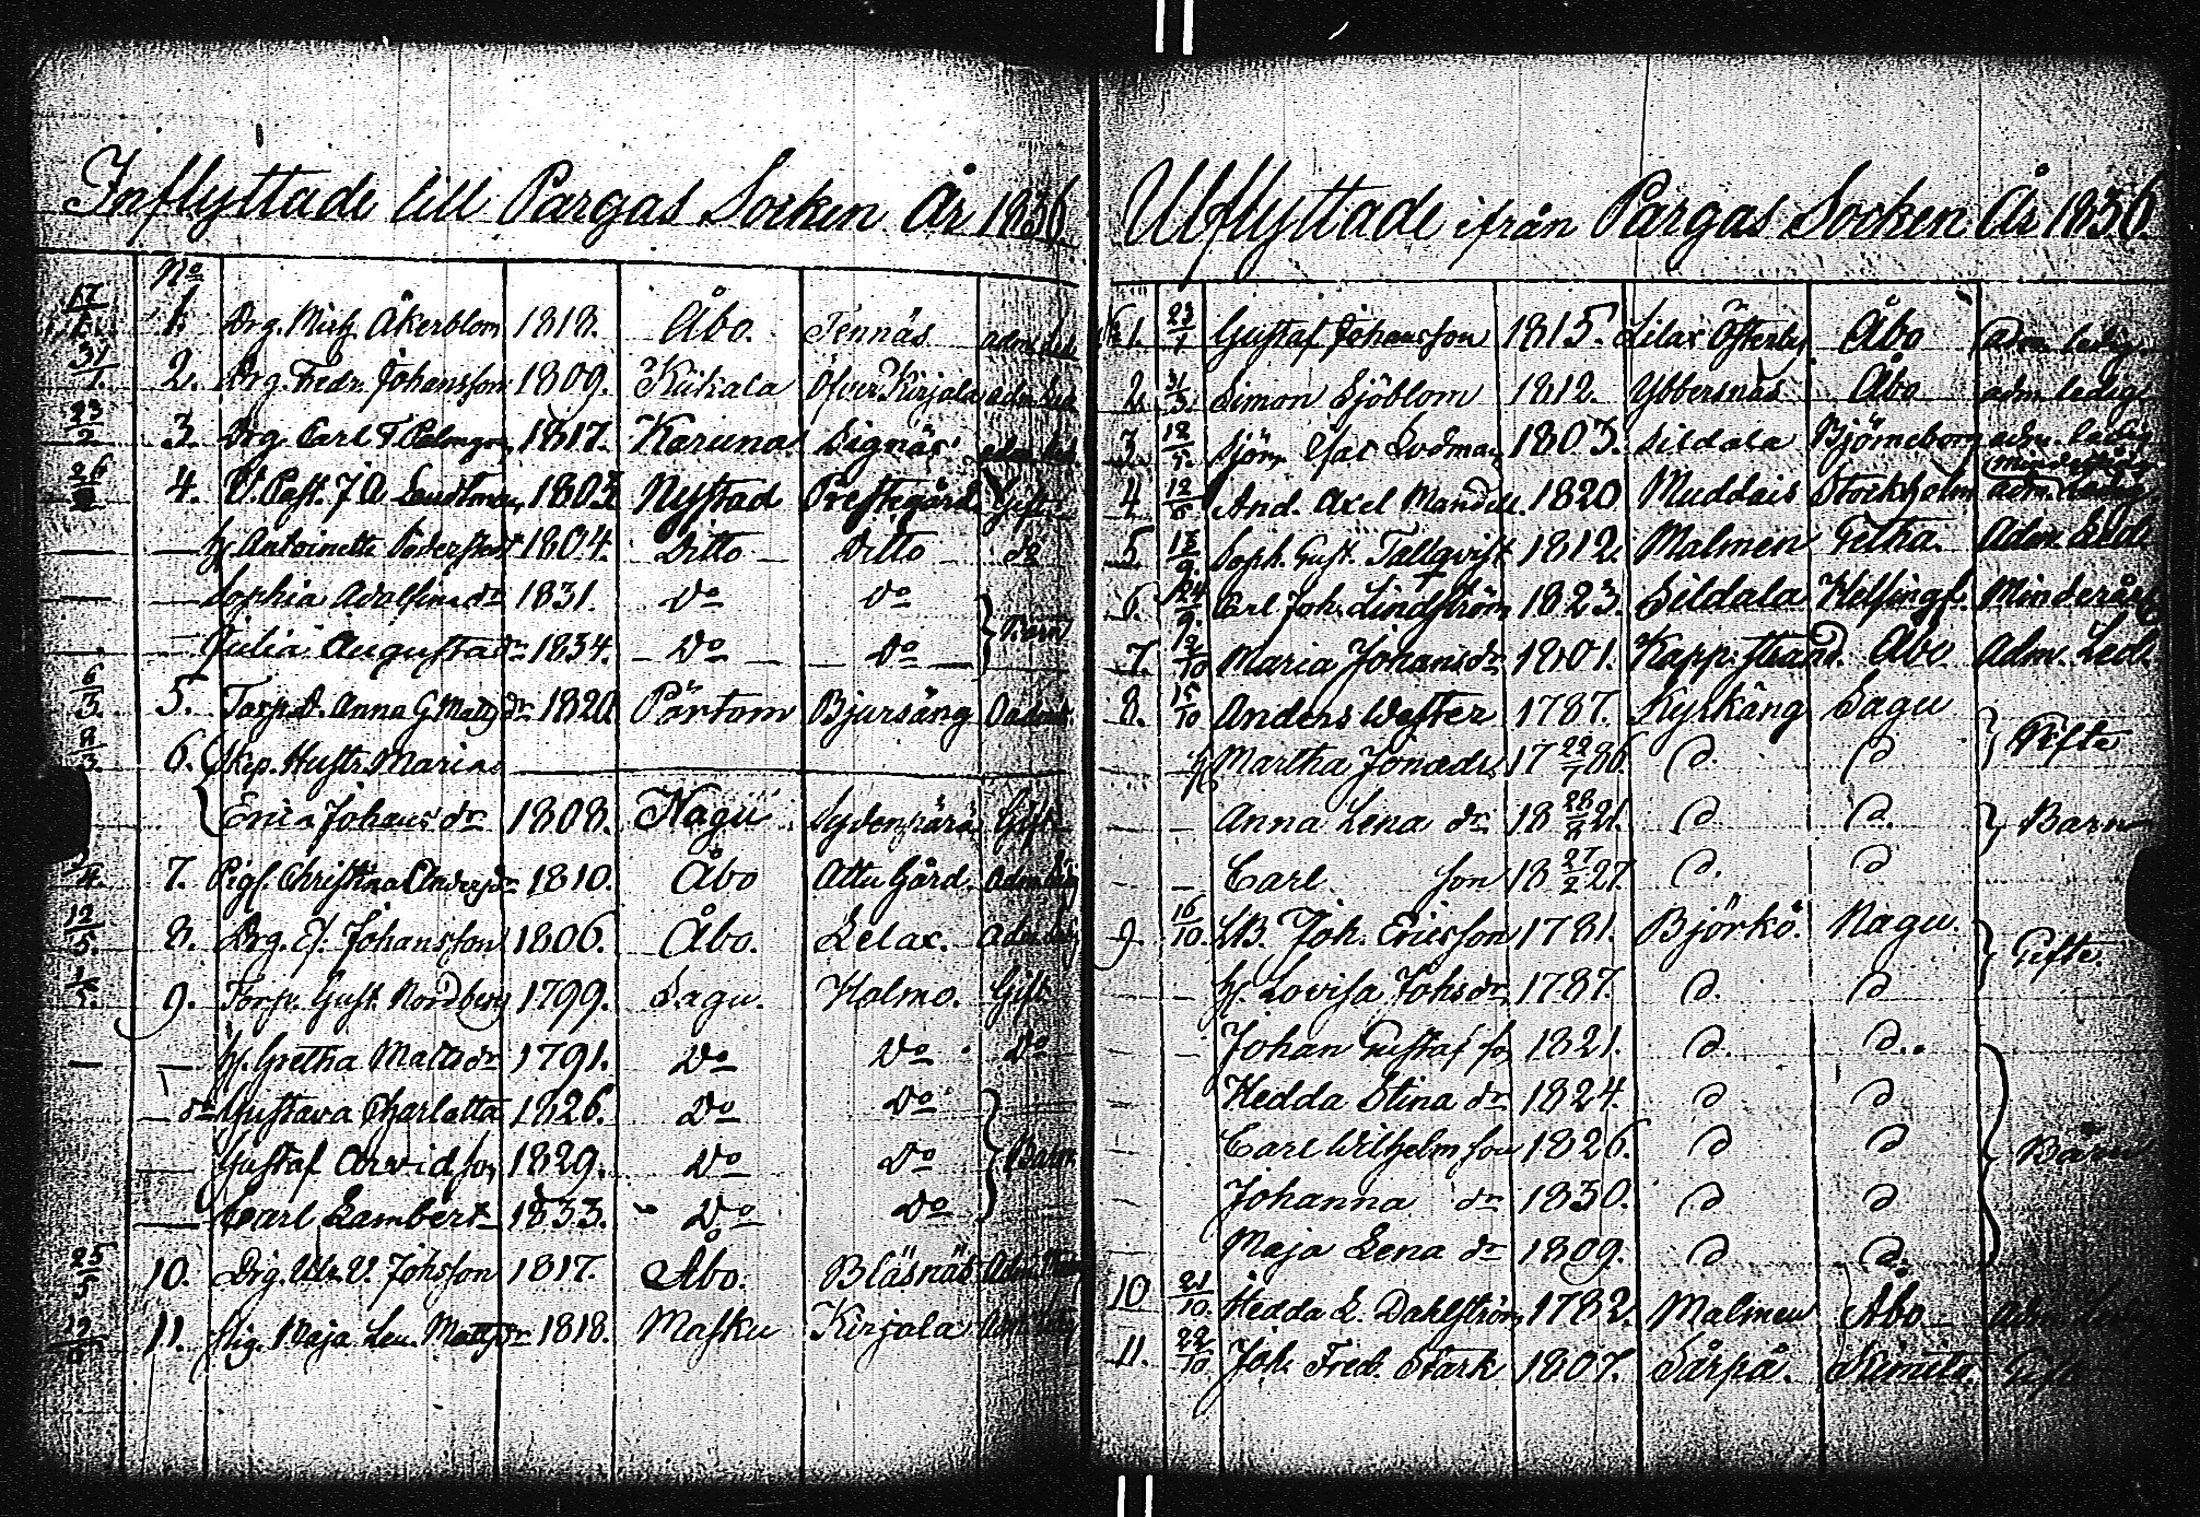 Inflyttade till Pargas Socken År 1836
No
17/1. 1. Drg. Mich Åkerblom 1818. Åbo. Tennäs
31/1. 2. Drg. Fredr. Johansson 1809. Kiikala Öfver Kirjala
23/2 3. Drg Carl F. 1817. Karuna Signäs
26 4. V. Past. J A 1803 Nystad Prestegård Gift
hj. Antoinette 1804. Ditto Ditto do
Sophia Adolfina dr 1831. Do Do
Julia Augusta dr 1834. Do Do Barn
6/3. 5. Torp.d. Anna G. Matts dr 1820 Pörtom Bjursäng
8/3. 6. Skep. Hustr. Maria
Erica Johans dr 1808. Nagu Gift
7. Pig. Christina Anders dr 1810. Åbo Attu Gård. Adm
12/5. 8. Drg. Johansson 1806. Åbo. Lelax. Adm
9. Torp. Gust. Nordberg 1799. Sagu. Holmo. Gift
hj. Gretha Matts dr 1791. Do Do Do
dr Gustava Charlotta 1826. Do Do
Gustaf Arvid son 1829. Do Do Barn
Carl Lambert 1833. Do Do
25/5 10. Drg. Johsson 1817. Åbo. Bläsnäs
11. Pig. Maja Len. Matts dr 1818. Masku Kirjala
Utflyttade ifrån Pargas Socken År 1836.
1. 23/1 Gustaf Johansson 1815. Lilax Österby Åbo adm. ledig
2. 31/3. Simon Sjöblom 1812. Ybbersnäs Åbo adm ledig
3. 12/5. Sjöm Isac 1803. Sildala Björneborg adm. ledig
4. 12 And. Axel Mandell. 1820 Muddais Stockholm
5. 13/9. Soph. Gust. Tallqvist 1812. Malmen Adm.
6. 24/9. Carl Joh. Lindström 1823. Sildala Helsingf. Minderårig
7. 12/10 Maria Johans dr 1801. Kapp. strand. Åbo Adm. Led.
8. 15/10 Anders Wester 1787. Kyrkäng Sagu
hj Martha 17 22/7 86. d. d Gifte
Anna Lena dr 18 28/8 21. d d. Barn
Carl son 18 27/2 27. d. d
9. 16/10. Joh. Ericsson 1781. Björkö. Nagu.
hj. Lovisa Johs dr 1787. d. d Gifte.
Johan Gustaf son 1821. d. d.
Hedda Stina dr 1824. d d
Carl Wilhelm son 1826. d d Barn
Johanna dr 1830. d d
Maja Lena dr 1809. d d.
10 21/10. Hedda L. Dahlström 1782. Malmen Åbo
11. 22/10. Joh. Fred. Stark 1807. Sårpå. Kimito. Gift